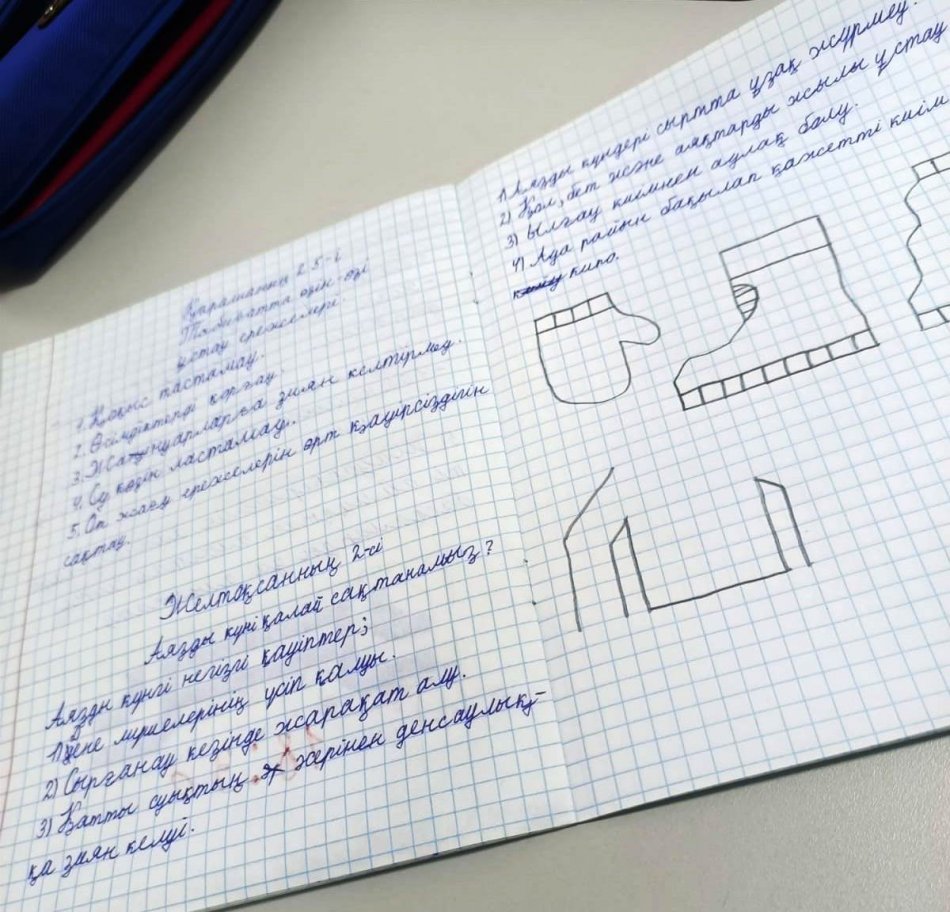 Қарашаның 25-і
Табиғатта өзін-өзі
ұстау ережелері
1. Қоқыс тастамау.
2. Өсімдіктерді қорғау.
3. Жануарларға зиян келтірмеу.
4. Су көзін ластамау.
5. От жағу ережелерін өрт қауіпсіздігін
сақтау.
Желтоқсанның 2-сі
Аязды күні қалай сақтанамыз?
Аязды күнгі негізгі қауіптер;
1) Дене мүшелерінің үсіп қалуы.
2) Сырғанау кезінде жарақат алу.
3) Қатты суықтың әсерінен денсаулық-
қа зиян келуі.
1) Аязды күндері сыртта ұзақ жүрмеу.
2) Қол, бет және аяқтарды жылы ұстау
3) Ылғал киімнен аулақ болу.
4) Ауа райын бақылап қажетті киім
кию.